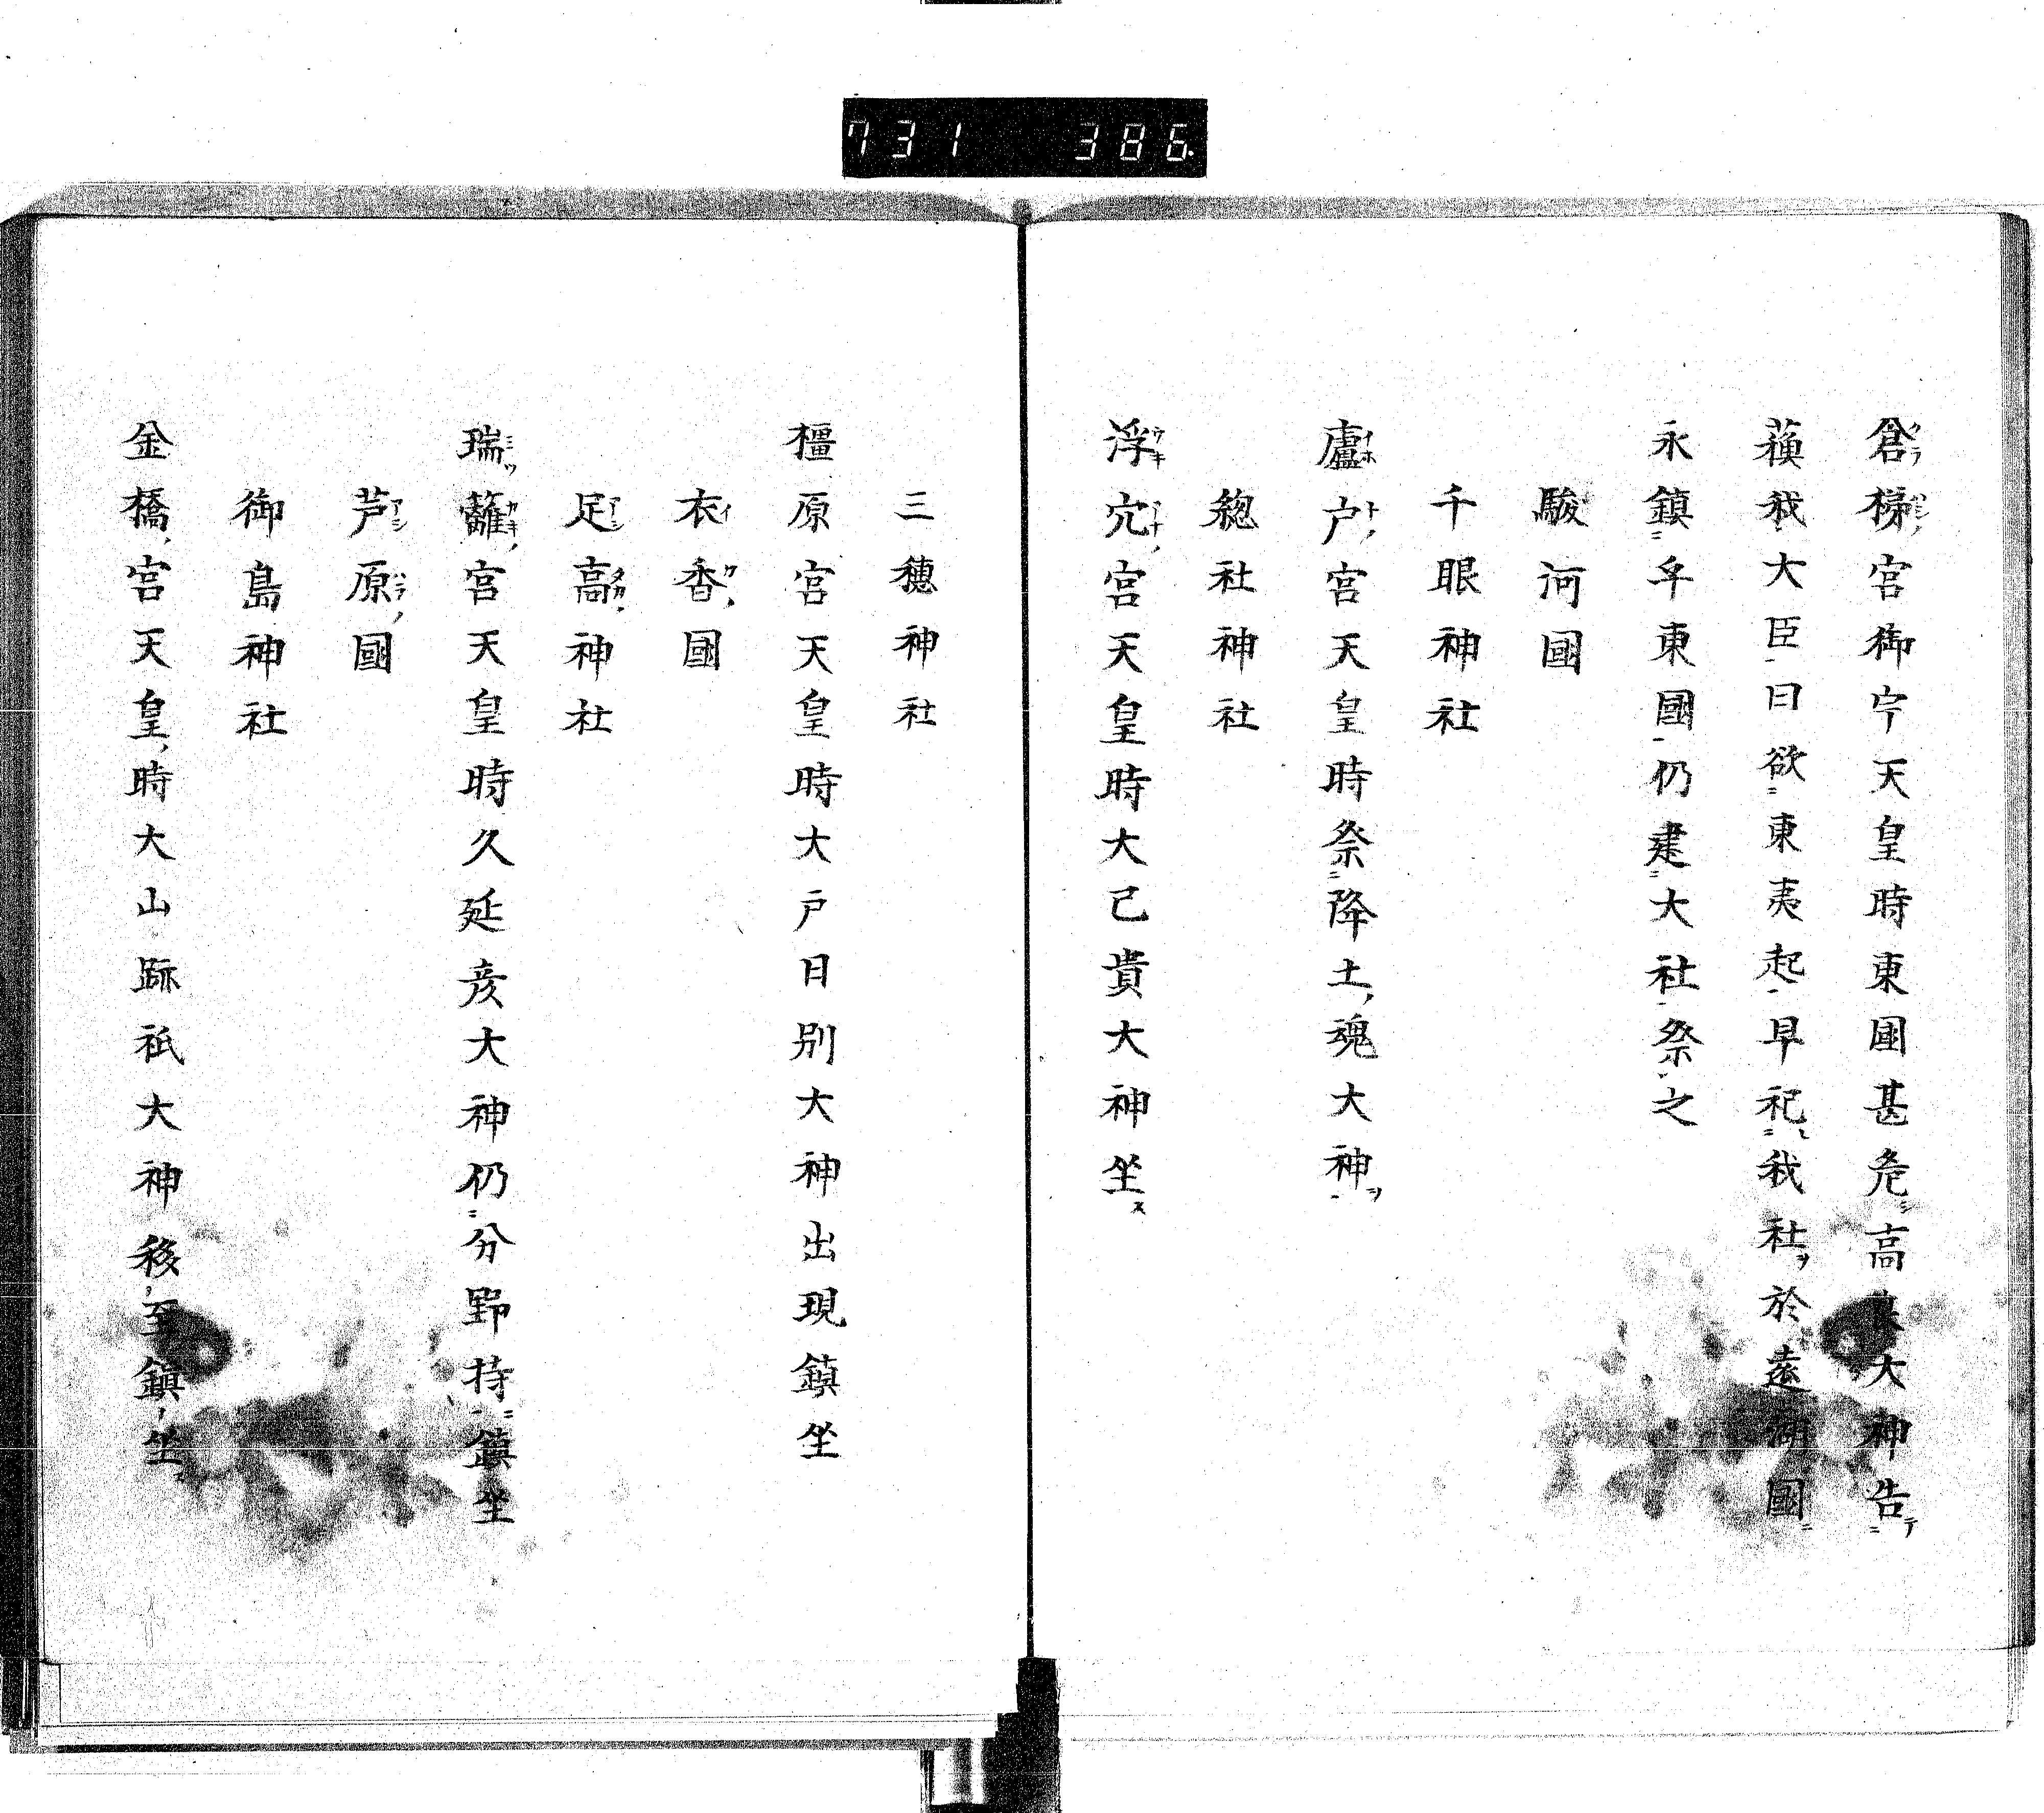 731 386
倉梯宮御宇天皇時東國甚危高大神告
蘓我大臣曰欲東夷起早祀我社於遠湖國
永鎮乎東國仍建大社祭之
駿河國
千眼神社
廬戸宮天皇時祭降土魂大神
総社神社
浮穴宮天皇時大己貴大神坐
三穂神社
橿原宮天皇時大戸日別大神出現鎮坐
衣香國
足高神社
瑞籬宮天皇時久延彦大神仍分野持鎮坐
芦原國
御島神社
金橋宮天皇時大山跡祇大神移至鎮坐